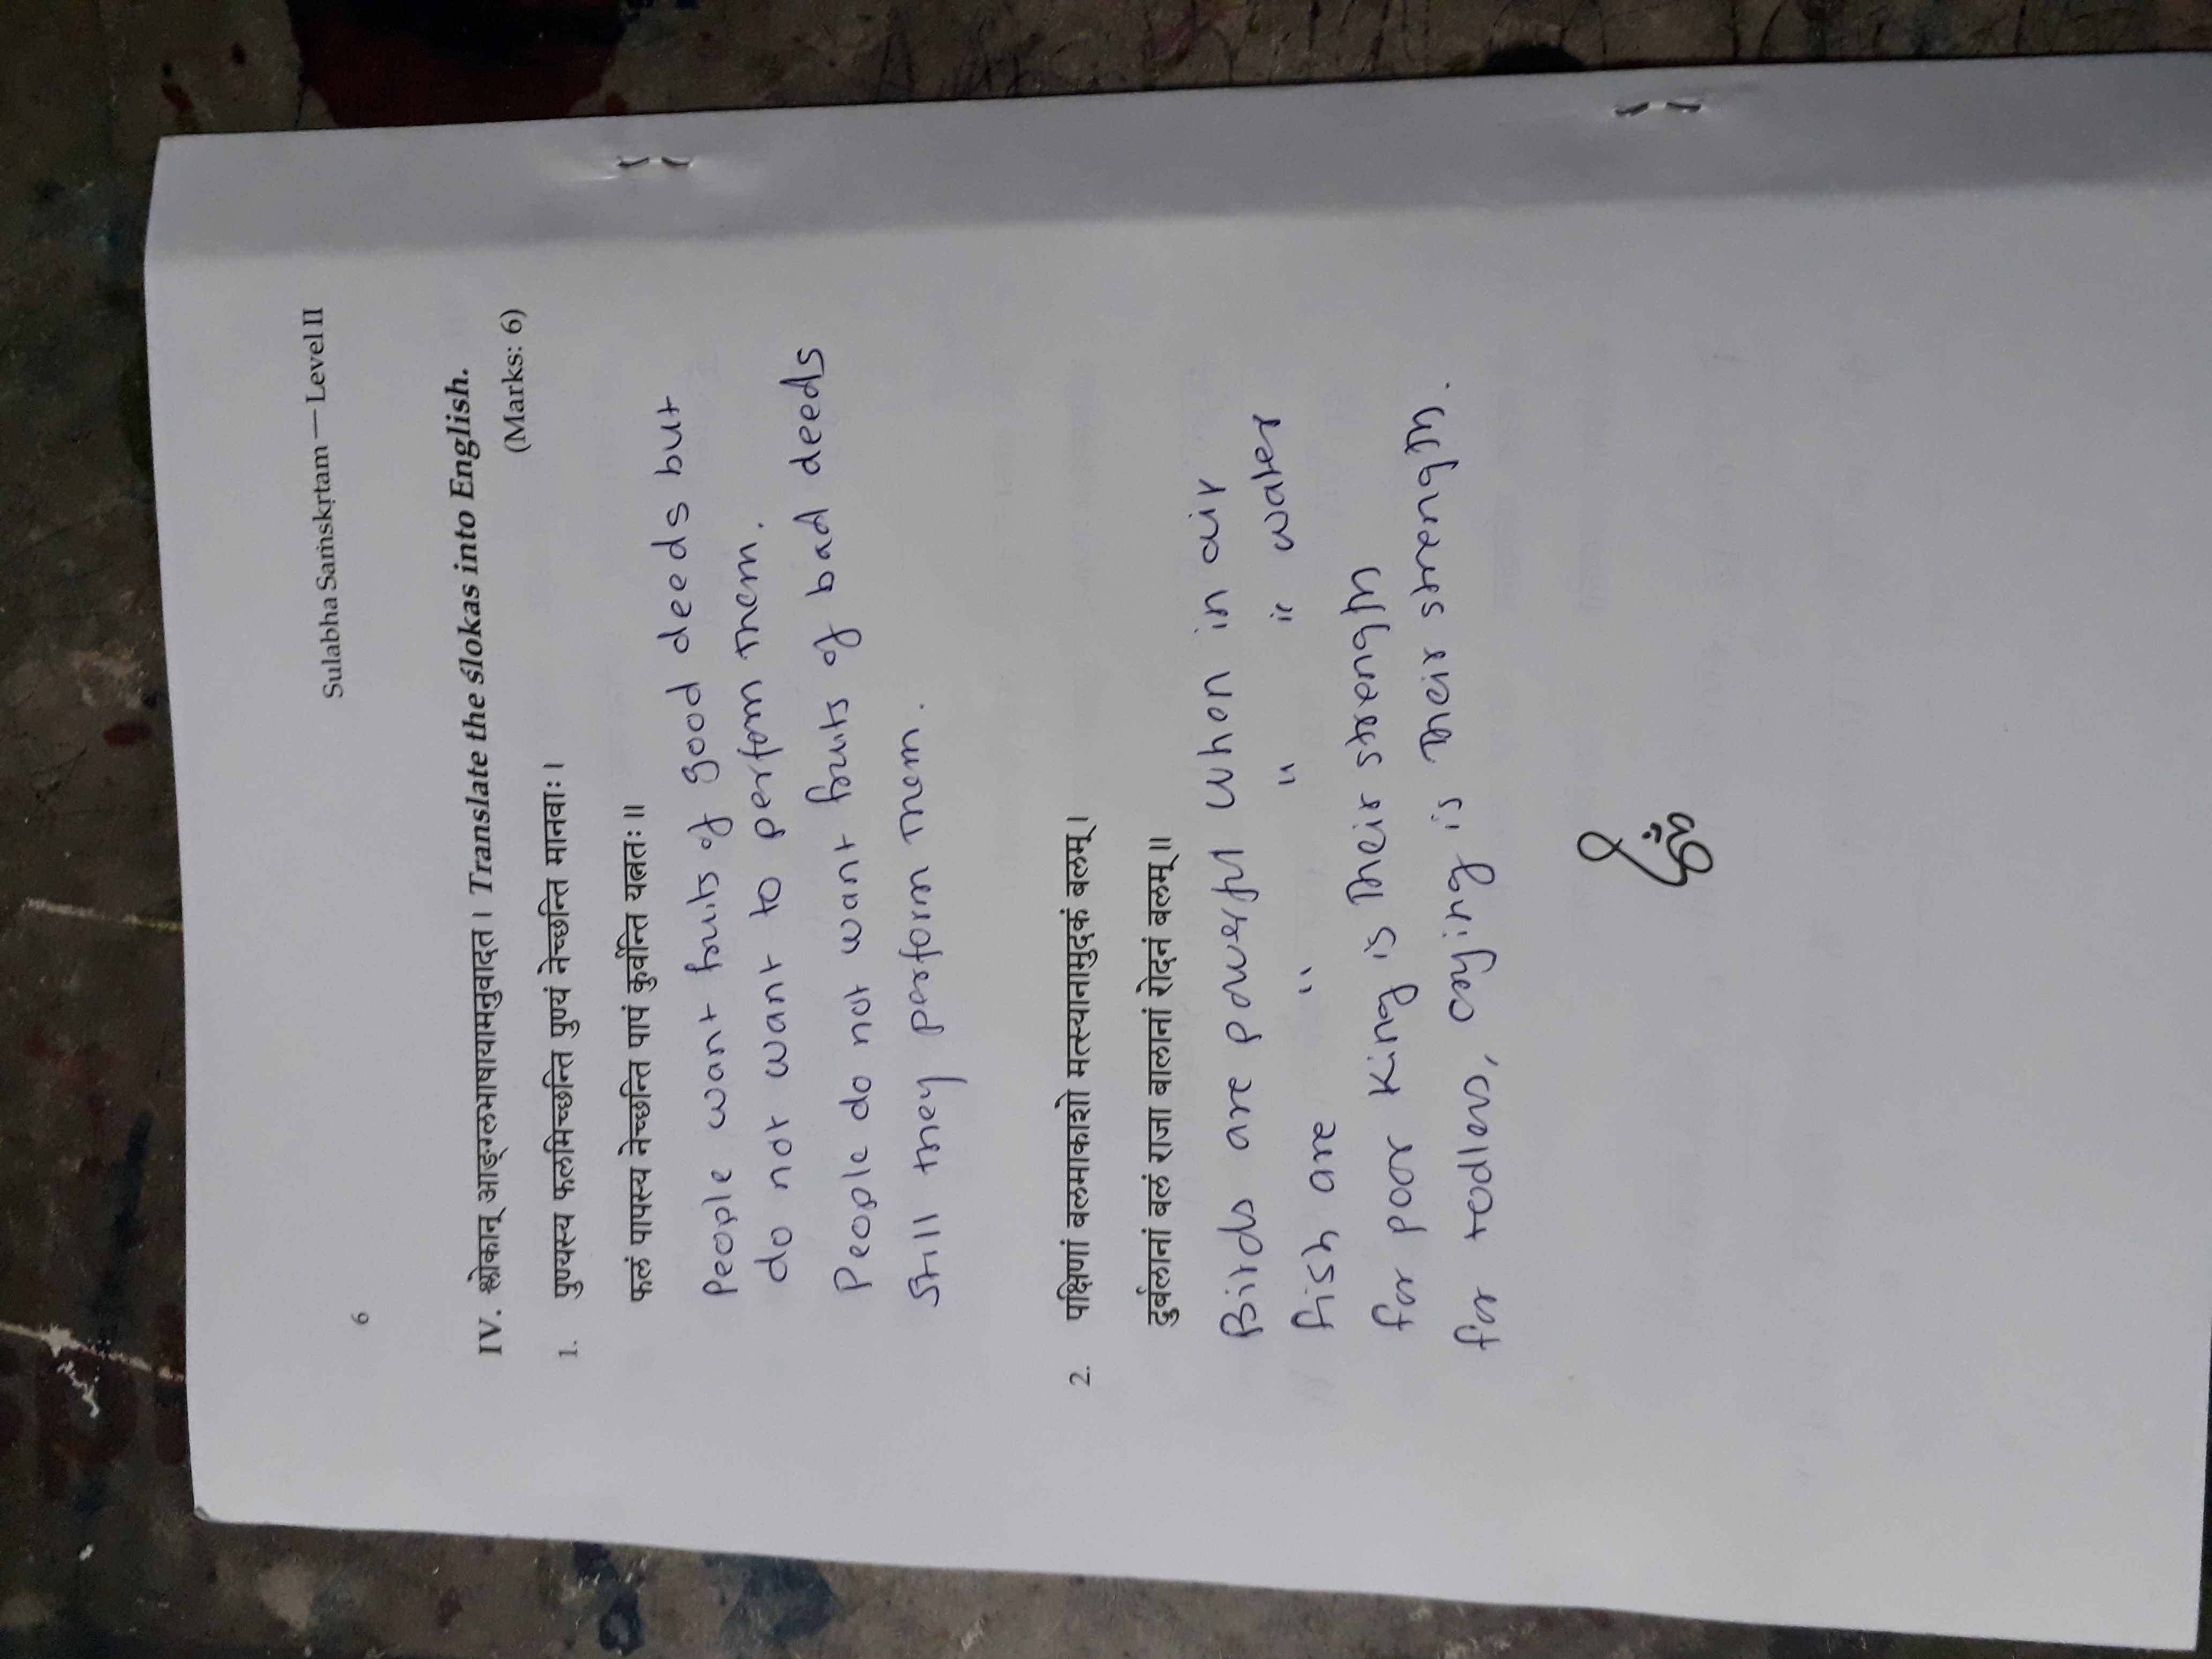 6
Sulabha Saṁskṛtam — Level II
IV. श्लोकान् आङ्ग्लभाषायामनुवादत । Translate the ślokas into English.
(Marks: 6)
1. पुण्यस्य फलमिच्छन्ति पुण्यं नेच्छन्ति मानवाः ।
फलं पापस्य नेच्छन्ति पापं कुर्वन्ति यत्नतः ॥
People want fruits of good deeds but
do not want to perform them.
People do not want fruits of bad deeds
still they perform them.
2. पक्षिणां बलमाकाशो मत्स्यानामुदकं बलम् ।
दुर्बलानां बलं राजा बालानां रोदनं बलम् ॥
Birds are powerful when in air
fish are " " in water
for poor King is their strength
for todlers, crying is their strength.
ॐ